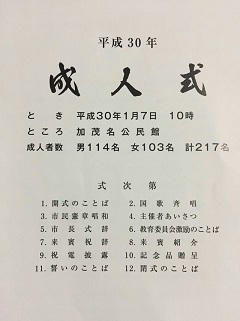 平成30年
成人式
とき 平成30年1月7日 10時
ところ 加茂名公民館
成人者数 男114名 女103名 計217名
式次第
1. 開式のことば 2. 国歌斉唱
3. 市民憲章唱和 4. 主催者あいさつ
5. 市長式辞 6. 教育委員会激励のことば
7. 来賓祝辞 8. 来賓紹介
9. 祝電披露 10. 記念品贈呈
11. 誓いのことば 12. 閉式のことば